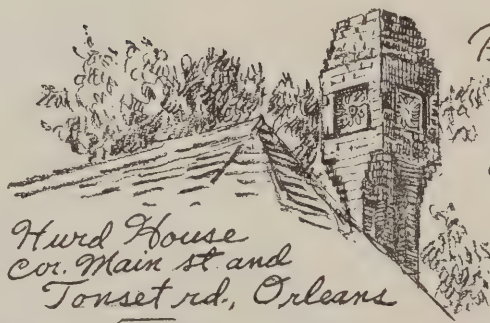 Hurd House
Cor. Main st. and
Tonset rd., Orleans